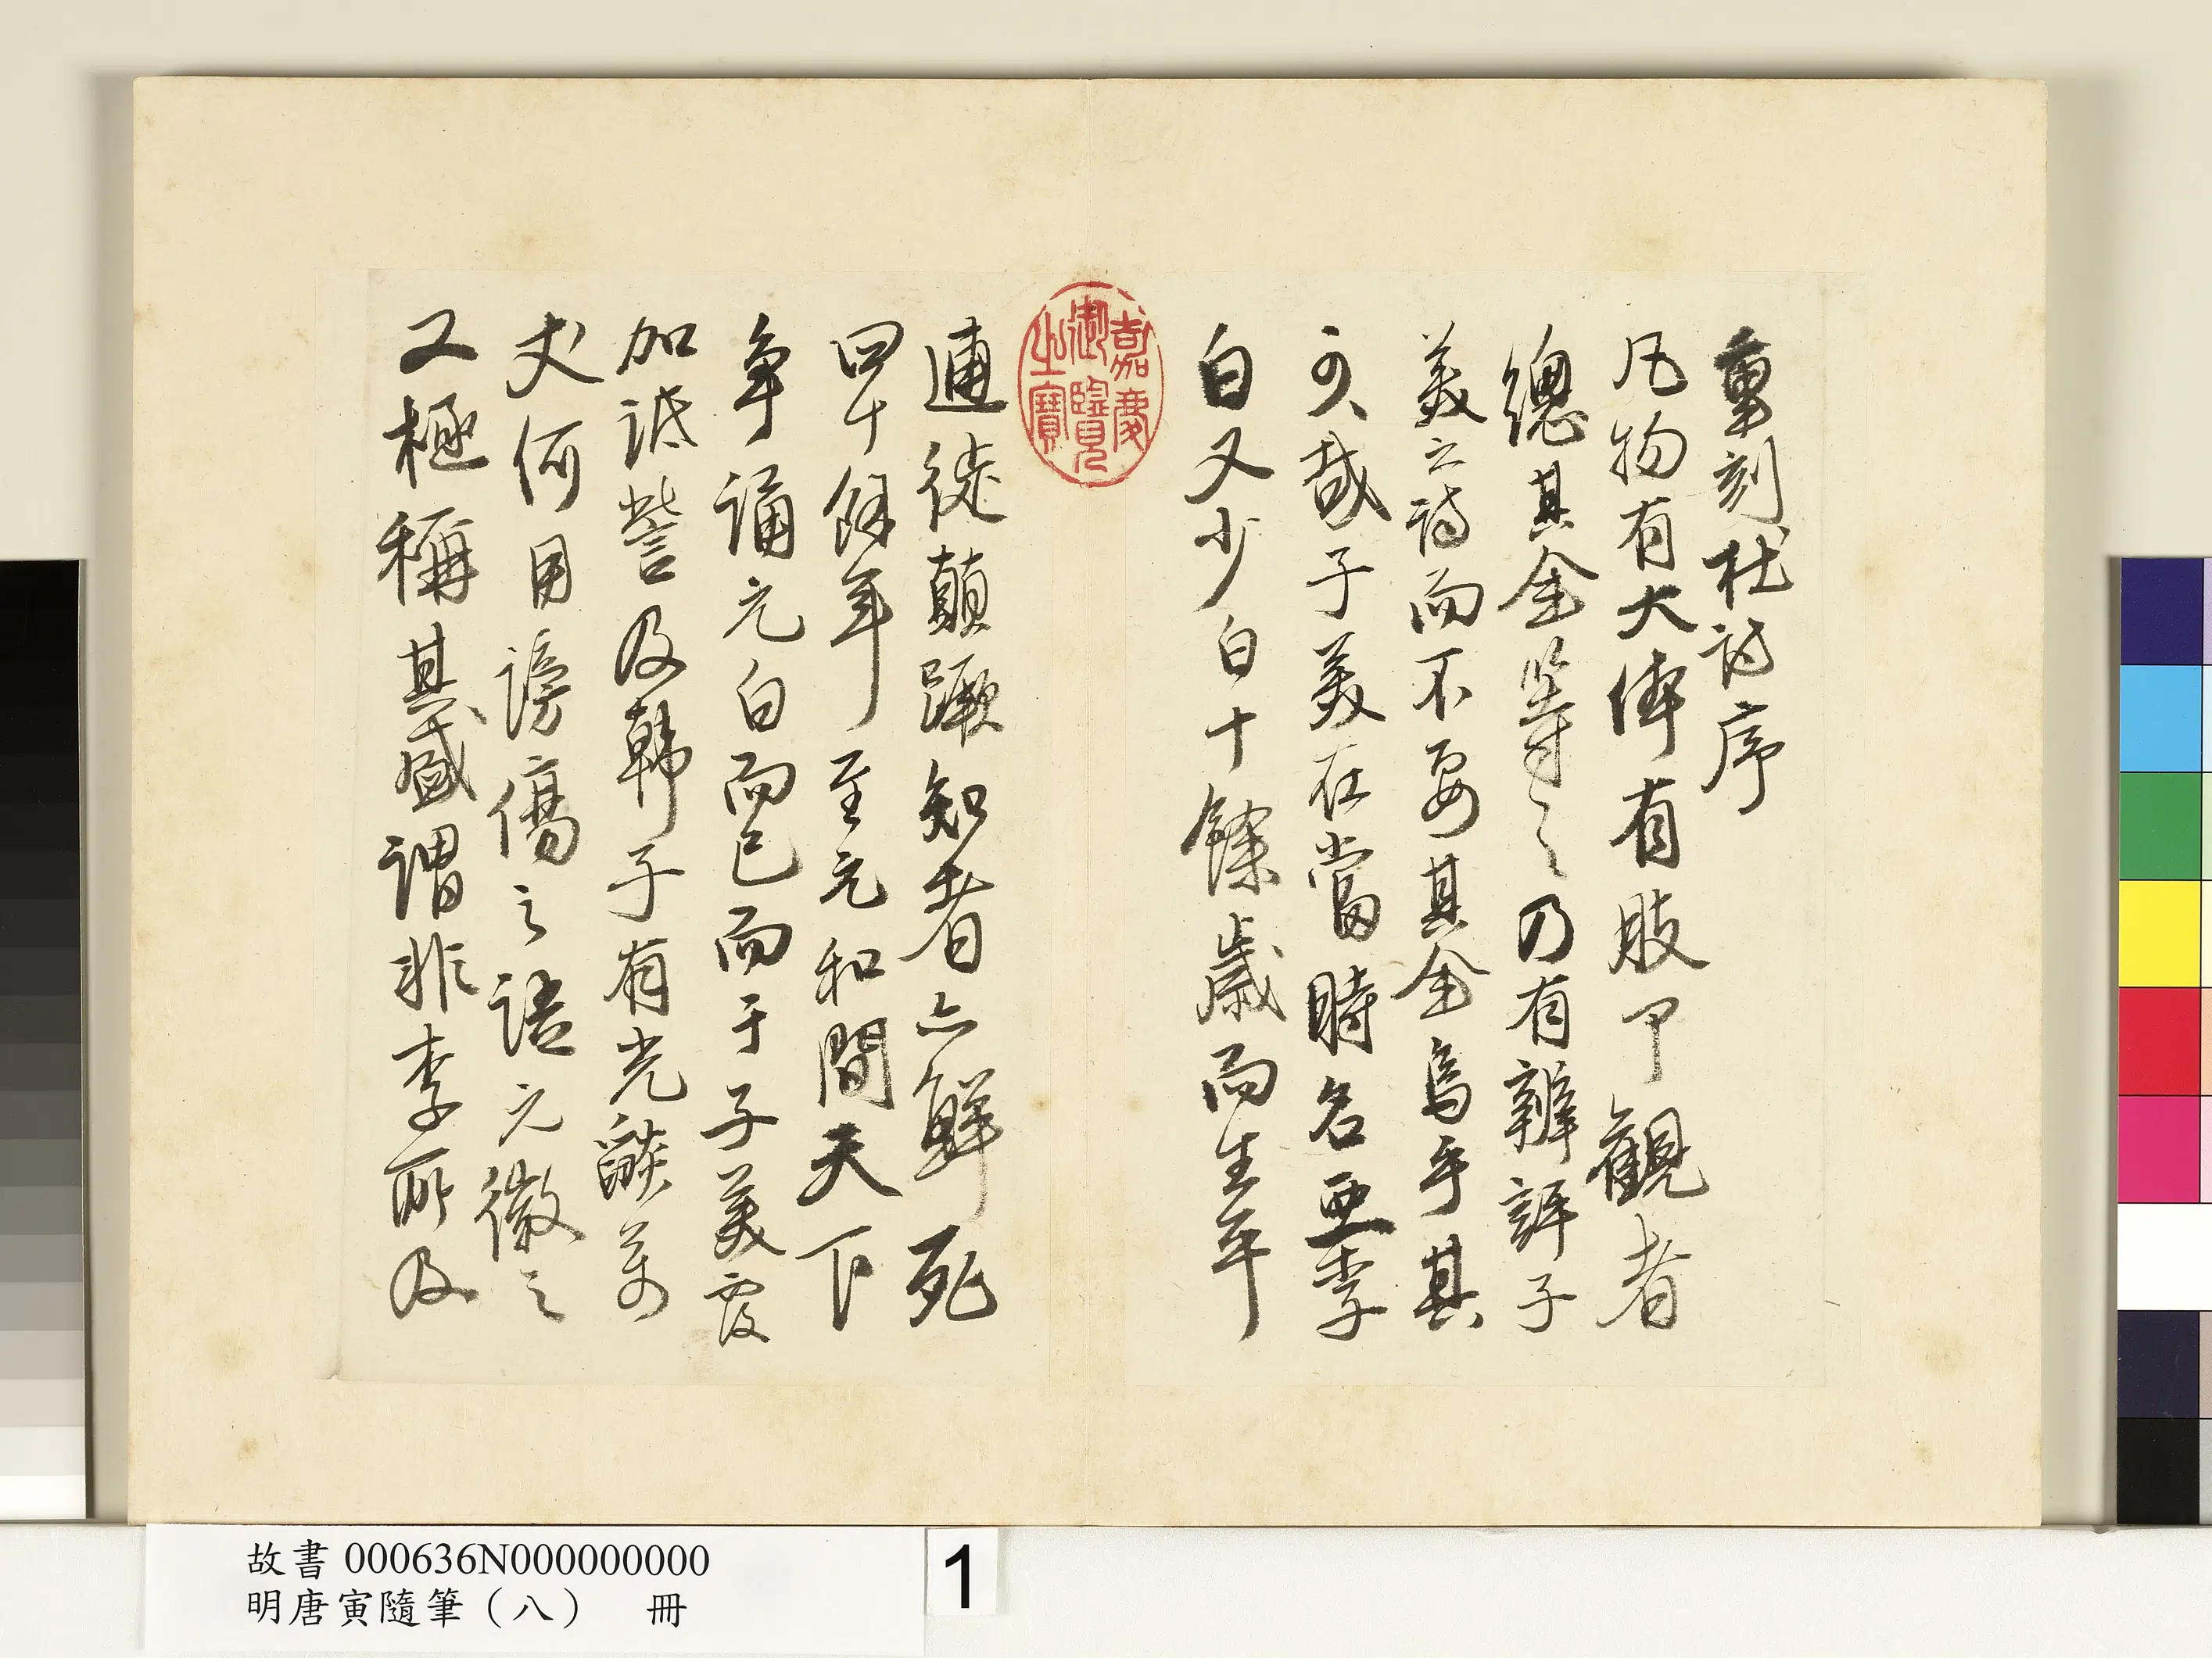 重刻杜詩序
凡物有大体有肢卩觀者
總其全等之乃有辨評子
美之詩而不要其全烏乎其
可哉子美在當時名亞李
白又少白十餘歲而生年
嘉慶御覽之寶
逋徙顛蹶知者亦鮮死
四十餘年至元和間天下
爭誦元白而已而于子美覆
加詆訾及韓子有光燄萬
丈何用謗傷之語元微之
又極稱其盛謂非李所及
故書 000636N000000000
明唐寅隨筆（八） 冊
1